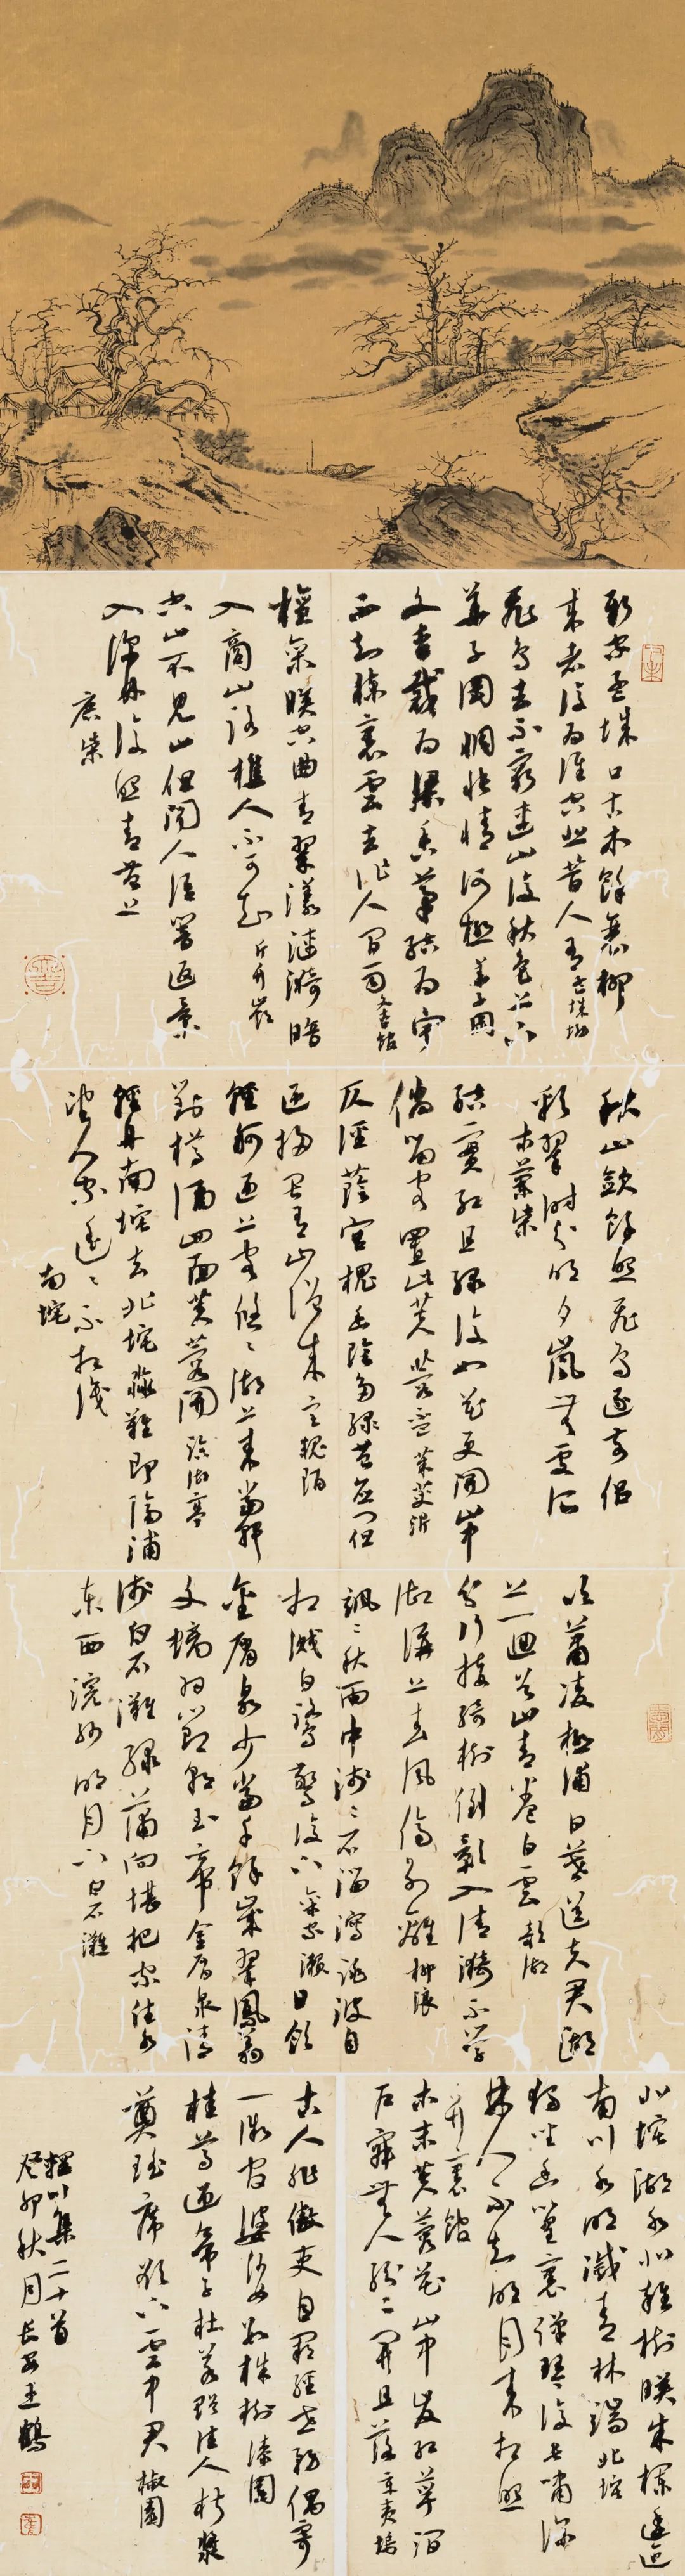 新家孟城口古木餘衰柳
來者復為誰空悲昔人有孟城坳
飛鳥去不窮連山復秋色上下
華子岡惆悵情何極華子岡
文杏裁為梁香茅結為宇
不知棟裏雲去作人間雨文杏館
檀欒映空曲青翠漾漣漪暗
入商山路樵人不可知斤竹嶺
空山不見山但聞人語響返景
入深林復照青苔上
鹿柴
秋山斂餘照飛鳥逐前侶
彩翠時分明夕嵐無處所
木蘭柴
結實紅且綠復如花更開山中
儻留客置此芙蓉杯茱萸沜
仄徑蔭宮槐幽陰多綠苔應門但
迎掃畏有山僧來宮槐陌
輕舸迎上客悠々湖上來當軒
對樽酒四面芙蓉開臨湖亭
輕舟南垞去北垞淼難即隔浦
望人家遙々不相識
南垞
吹簫凌極浦日暮送夫君湖
上一迴首山青卷白雲欹湖
分行接綺樹倒影入清漪不學
御溝上春風傷別離柳浪
颯々秋雨中淺々石溜瀉跳波自
相濺白鷺驚復下欒家瀨日飲
金屑泉少當千餘歲翠鳳翥
文螭羽節朝玉帝金屑泉清
淺白石灘綠蒲向堪把家住水
東西浣紗明月下白石灘
北垞湖水北雜樹映朱欄逶迤
南川水明滅青林端北垞
獨坐幽篁裏彈琴復長嘯深
林人不知明月來相照
竹裏館
木末芙蓉花山中發紅萼澗
戶寂無人紛々開且落辛夷塢
古人非傲吏自闕經世務偶寄
一微官婆娑數株樹漆園
桂尊迎帝子杜若贈佳人椒漿
奠瑤席欲下雲中君椒園
輞川集二十首
癸卯秋月長安王鶴